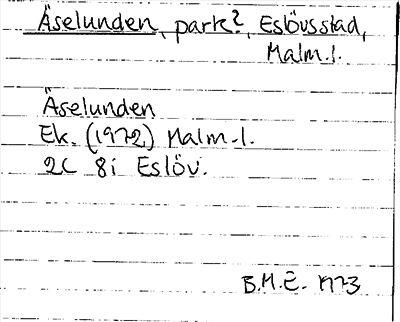 Äselunden, park?, Eslövsstad,
Malm.l.
Äselunden
Ek. (1972) Malm.l.
2C 8i Eslöv.
B.M.E. 1973